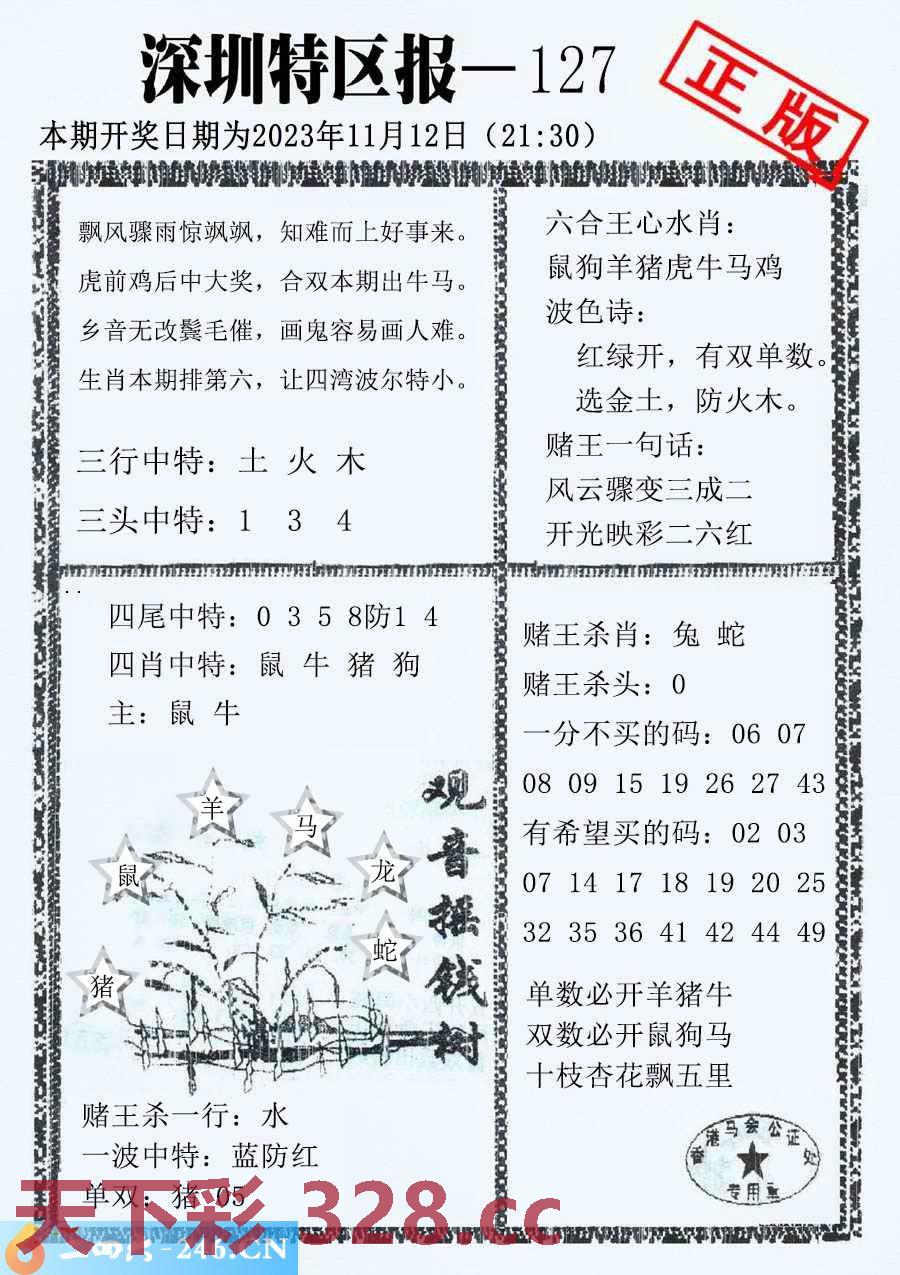 深圳特区报—127
正版
本期开奖日期为2023年11月12日（21:30）
飘风骤雨惊飒飒，知难而上好事来。
虎前鸡后中大奖，合双本期出牛马。
乡音无改鬓毛催，画鬼容易画人难。
生肖本期排第六，让四湾波尔特小。
三行中特：土 火 木
三头中特：1 3 4
六合王心水肖：
鼠狗羊猪虎牛马鸡
波色诗：
红绿开，有双单数。
选金土，防火木。
赌王一句话：
风云骤变三成二
开光映彩二六红
四尾中特：0 3 5 8防1 4
四肖中特：鼠 牛 猪 狗
主：鼠 牛
羊
马
鼠
龙
蛇
猪
观音摇钱树
赌王杀一行：水
一波中特：蓝防红
单双：猪 05
赌王杀肖：兔 蛇
赌王杀头：0
一分不买的码：06 07
08 09 15 19 26 27 43
有希望买的码：02 03
07 14 17 18 19 20 25
32 35 36 41 42 44 49
单数必开羊猪牛
双数必开鼠狗马
十枝杏花飘五里
香港马会公证处
专用章
天下彩 328.cc
-246.CN